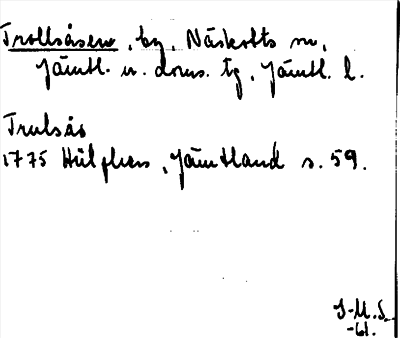 Trollsåsen, by, Näskotts sn,
Jämtl. n. doms. tg, Jämtl. l.
Trulsås
1775 Hülphers, Jämtland s. 59.
J-M.S.
-61.